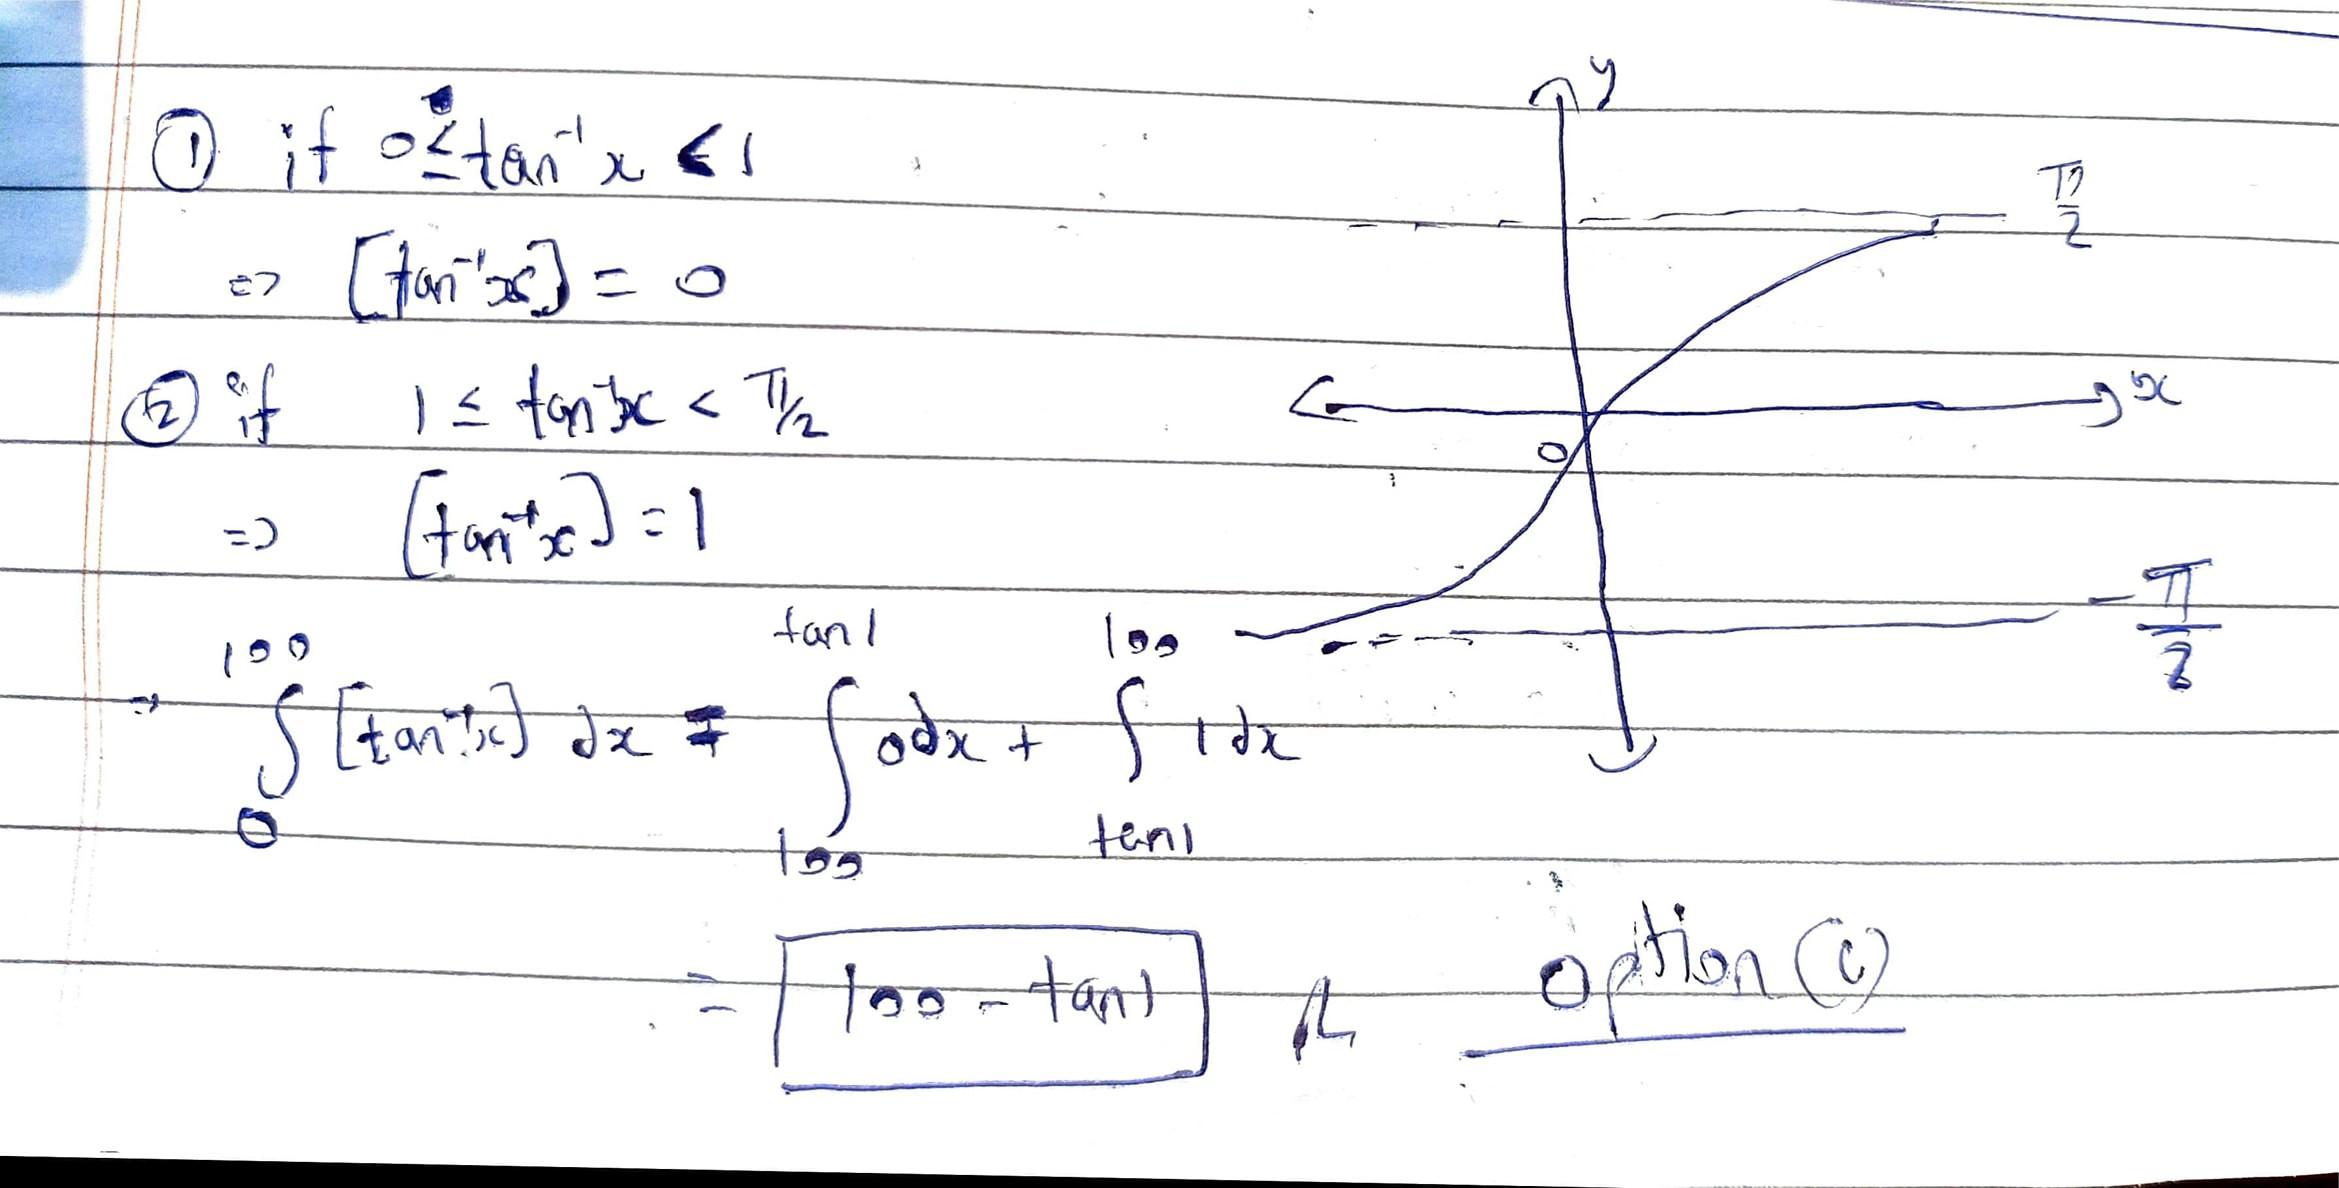 ① if 0 ≤ tan⁻¹x < 1
⇒ [tan⁻¹x] = 0
② if 1 ≤ tan⁻¹x < π/2
⇒ [tan⁻¹x] = 1
→ ∫₀¹⁰⁰ [tan⁻¹x] dx = ∫₁₀₀^tan1 0dx + ∫_tan1^100 1dx
= 100 - tan1
Option (C)
y
π/2
x
0
-π/2